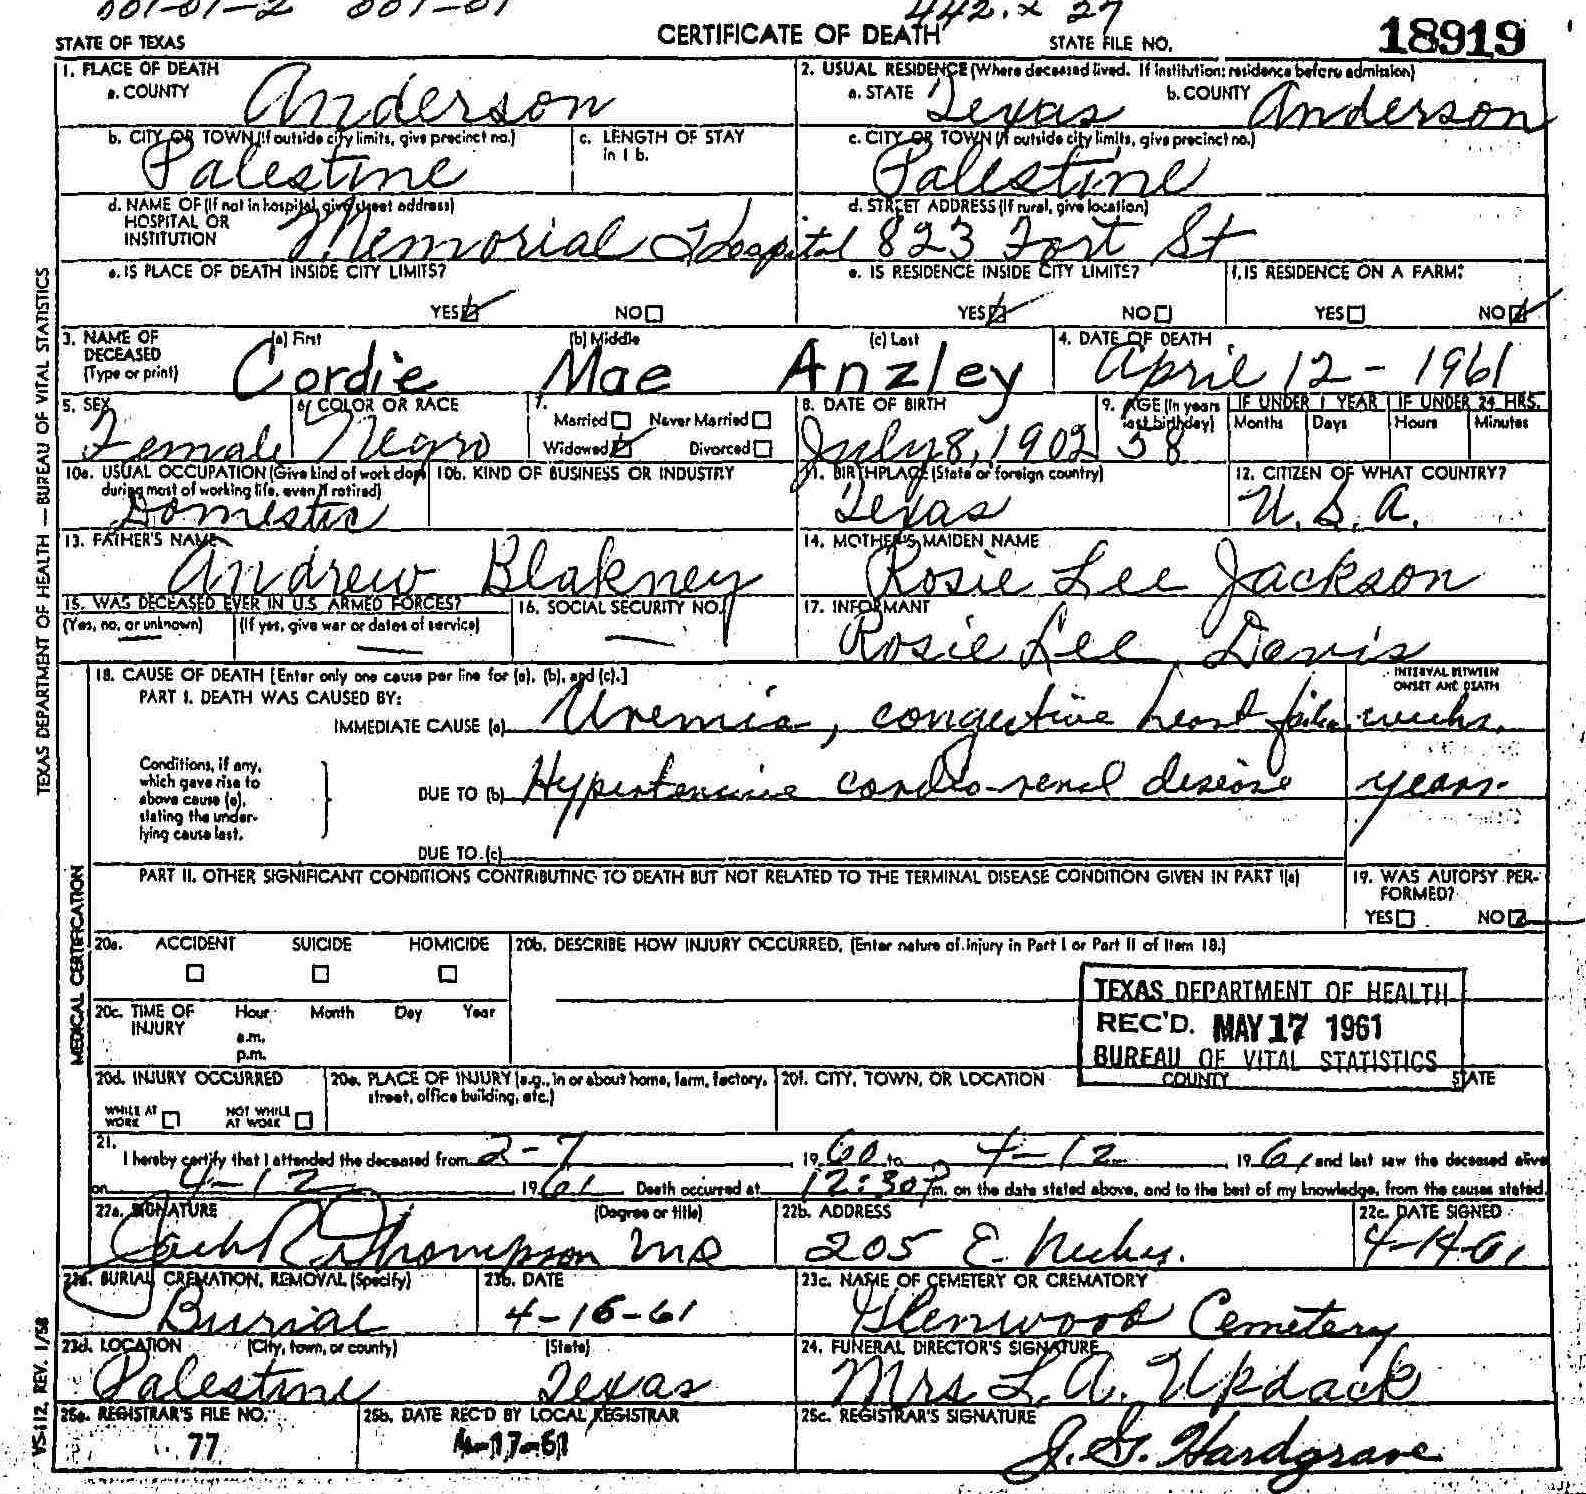 001-01-2 001-01 442.x 27
STATE OF TEXAS CERTIFICATE OF DEATH STATE FILE NO. 18919
1. PLACE OF DEATH 2. USUAL RESIDENCE (Where deceased lived. If institution: residence before admission)
a. COUNTY Anderson a. STATE Texas b. COUNTY Anderson
b. CITY OR TOWN (If outside city limits, give precinct no.) c. LENGTH OF STAY in 1 b. c. CITY OR TOWN (If outside city limits, give precinct no.)
Palestine Palestine
d. NAME OF (If not in hospital, give street address) d. STREET ADDRESS (If rural, give location)
HOSPITAL OR INSTITUTION Memorial Hospital 823 Fort St
e. IS PLACE OF DEATH INSIDE CITY LIMITS? e. IS RESIDENCE INSIDE CITY LIMITS? f. IS RESIDENCE ON A FARM?
YES NO YES NO YES NO
3. NAME OF DECEASED (Type or print) (a) First (b) Middle (c) Last 4. DATE OF DEATH
Cordie Mae Anzley April 12 - 1961
5. SEX 6. COLOR OR RACE 7. Married Never Married 8. DATE OF BIRTH 9. AGE (In years last birthday) IF UNDER 1 YEAR IF UNDER 24 HRS.
Months Days Hours Minutes
Female Negro Widowed Divorced July 8, 1902 58
10a. USUAL OCCUPATION (Give kind of work done during most of working life, even if retired) 10b. KIND OF BUSINESS OR INDUSTRY 11. BIRTHPLACE (State or foreign country) 12. CITIZEN OF WHAT COUNTRY?
Domestic Texas U.S.A.
13. FATHER'S NAME 14. MOTHER'S MAIDEN NAME
Andrew Blakney Rosie Lee Jackson
15. WAS DECEASED EVER IN U.S. ARMED FORCES? 16. SOCIAL SECURITY NO. 17. INFORMANT
(Yes, no, or unknown) (If yes, give war or dates of service) Rosie Lee Davis
18. CAUSE OF DEATH [Enter only one cause per line for (a), (b), and (c).] INTERVAL BETWEEN ONSET AND DEATH
PART I. DEATH WAS CAUSED BY:
IMMEDIATE CAUSE (a) Uremia, congestive heart failure weeks.
Conditions, if any, which gave rise to above cause (a), stating the underlying cause last.
DUE TO (b) Hypertensive cardio-renal disease years.
DUE TO (c)
PART II. OTHER SIGNIFICANT CONDITIONS CONTRIBUTING TO DEATH BUT NOT RELATED TO THE TERMINAL DISEASE CONDITION GIVEN IN PART I(a) 19. WAS AUTOPSY PERFORMED?
YES NO
20a. ACCIDENT SUICIDE HOMICIDE 20b. DESCRIBE HOW INJURY OCCURRED. (Enter nature of injury in Part I or Part II of Item 18.)
20c. TIME OF INJURY Hour Month Day Year
a.m.
p.m.
TEXAS DEPARTMENT OF HEALTH
REC'D. MAY 17 1961
BUREAU OF VITAL STATISTICS
20d. INJURY OCCURRED 20e. PLACE OF INJURY (e.g., in or about home, farm, factory, street, office building, etc.) 20f. CITY, TOWN, OR LOCATION COUNTY STATE
WHILE AT WORK NOT WHILE AT WORK
21. I hereby certify that I attended the deceased from 2-7 1960 to 4-12 1961 and last saw the deceased alive
on 4-12 1961 Death occurred at 12:30 P m. on the date stated above, and to the best of my knowledge, from the causes stated.
22a. SIGNATURE (Degree or title) 22b. ADDRESS 22c. DATE SIGNED
Jack R. Thompson MD 205 E. 4-14-61
23a. BURIAL, CREMATION, REMOVAL (Specify) 23b. DATE 23c. NAME OF CEMETERY OR CREMATORY
Burial 4-16-61 Glenwood Cemetery
23d. LOCATION (City, town, or county) (State) 24. FUNERAL DIRECTOR'S SIGNATURE
Palestine Texas Mrs L.A. Updack
25a. REGISTRAR'S FILE NO. 25b. DATE REC'D BY LOCAL REGISTRAR 25c. REGISTRAR'S SIGNATURE
77 4-17-61 J. G. Hardgrave
TEXAS DEPARTMENT OF HEALTH — BUREAU OF VITAL STATISTICS
MEDICAL CERTIFICATION
VS-112, REV. 1/58